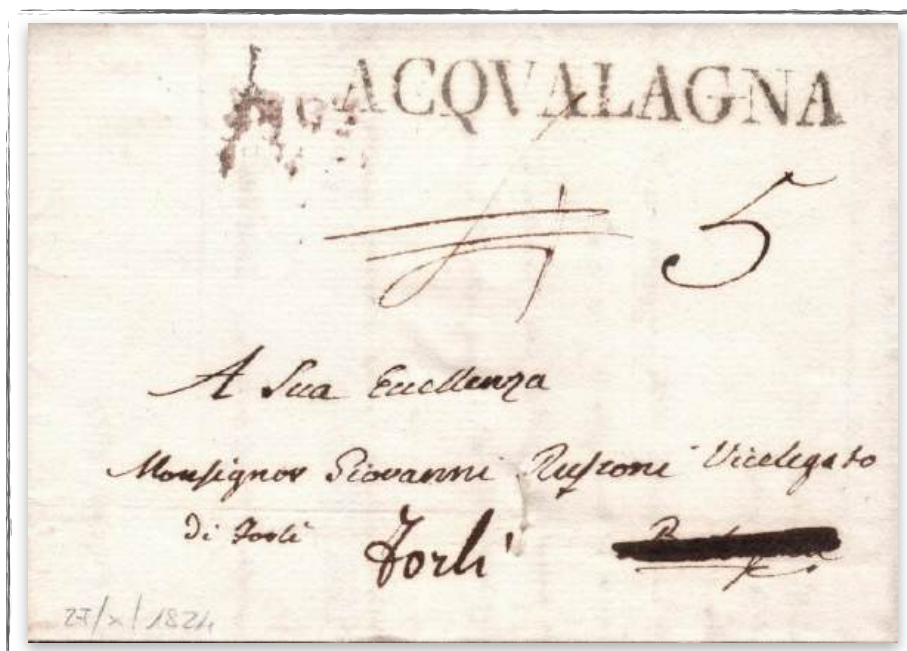 ACQVALAGNA
5
A Sua Eccellenza
Monsignor Giovanni Rusconi Vicelegato
Di Forlì Forlì
27/X/1824